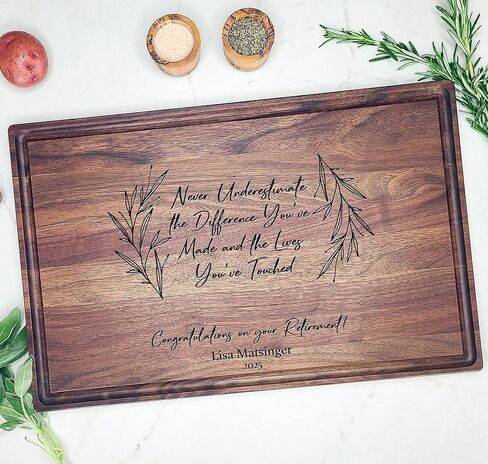 Never Underestimate
the Difference You've
Made and the Lives
You've Touched
Congratulations on your Retirement!
Lisa Matsinger
2025